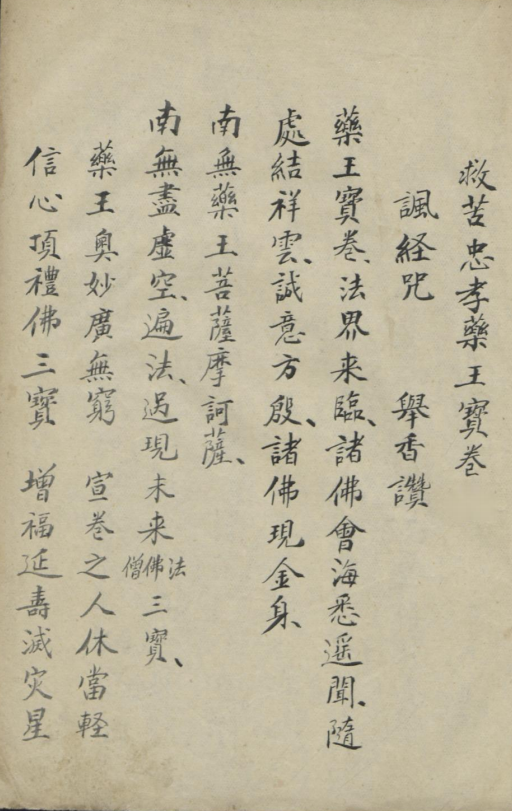 救苦忠孝藥王寶卷
諷経咒 舉香讚
藥王寶卷、法界来臨、諸佛會海悉遥聞、隨
處結祥雲、誠意方殷、諸佛現金身、
南無藥王菩薩摩訶薩、
南無盡虛空、遍法、過現未来僧佛法三寶、
藥王奥妙廣無窮 宣卷之人休當軽
信心頂禮佛三寶 增福延壽滅灾星